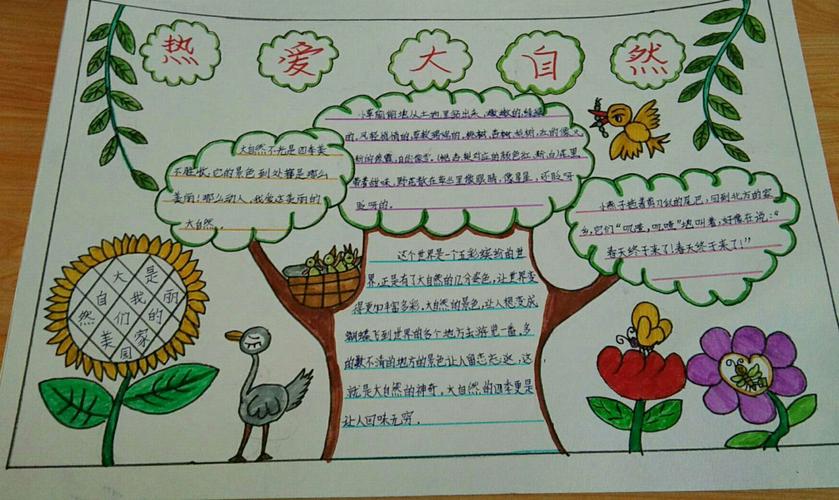 热爱大自然
大自然不光是四季美
不胜收,它的景色到处都是那么
美丽!那么动人,我爱这美丽的
大自然。
小草偷偷地从土地里钻出头,嫩嫩的绿绿
的,风轻悄悄的,草软绵绵的,桃树、杏树、梨树,红的像火
粉的像霞,白的像雪,(桃杏梨对应的颜色红、粉、白)花里
带着甜味,野花散在草丛里像眼睛,像星星,还眨呀
眨呀的。
小燕子拖着剪刀似的尾巴,回到北方的家
乡,它们“叽喳,叽喳”地叫着,好像在说:“
春天终于来了!春天终于来了!”
这个世界是一个五彩缤纷的世
界,正是有了大自然的几分姿色,让世界变
得更加丰富多彩,大自然的景色,让人想变成
蝴蝶飞到世界的各个地方去游览一番,多
的数不清的地方的景色让人留恋,这
就是大自然的神奇,大自然的四季更是
让人回味无穷。
大 是
自 我 丽
然 们 的
美 国 家